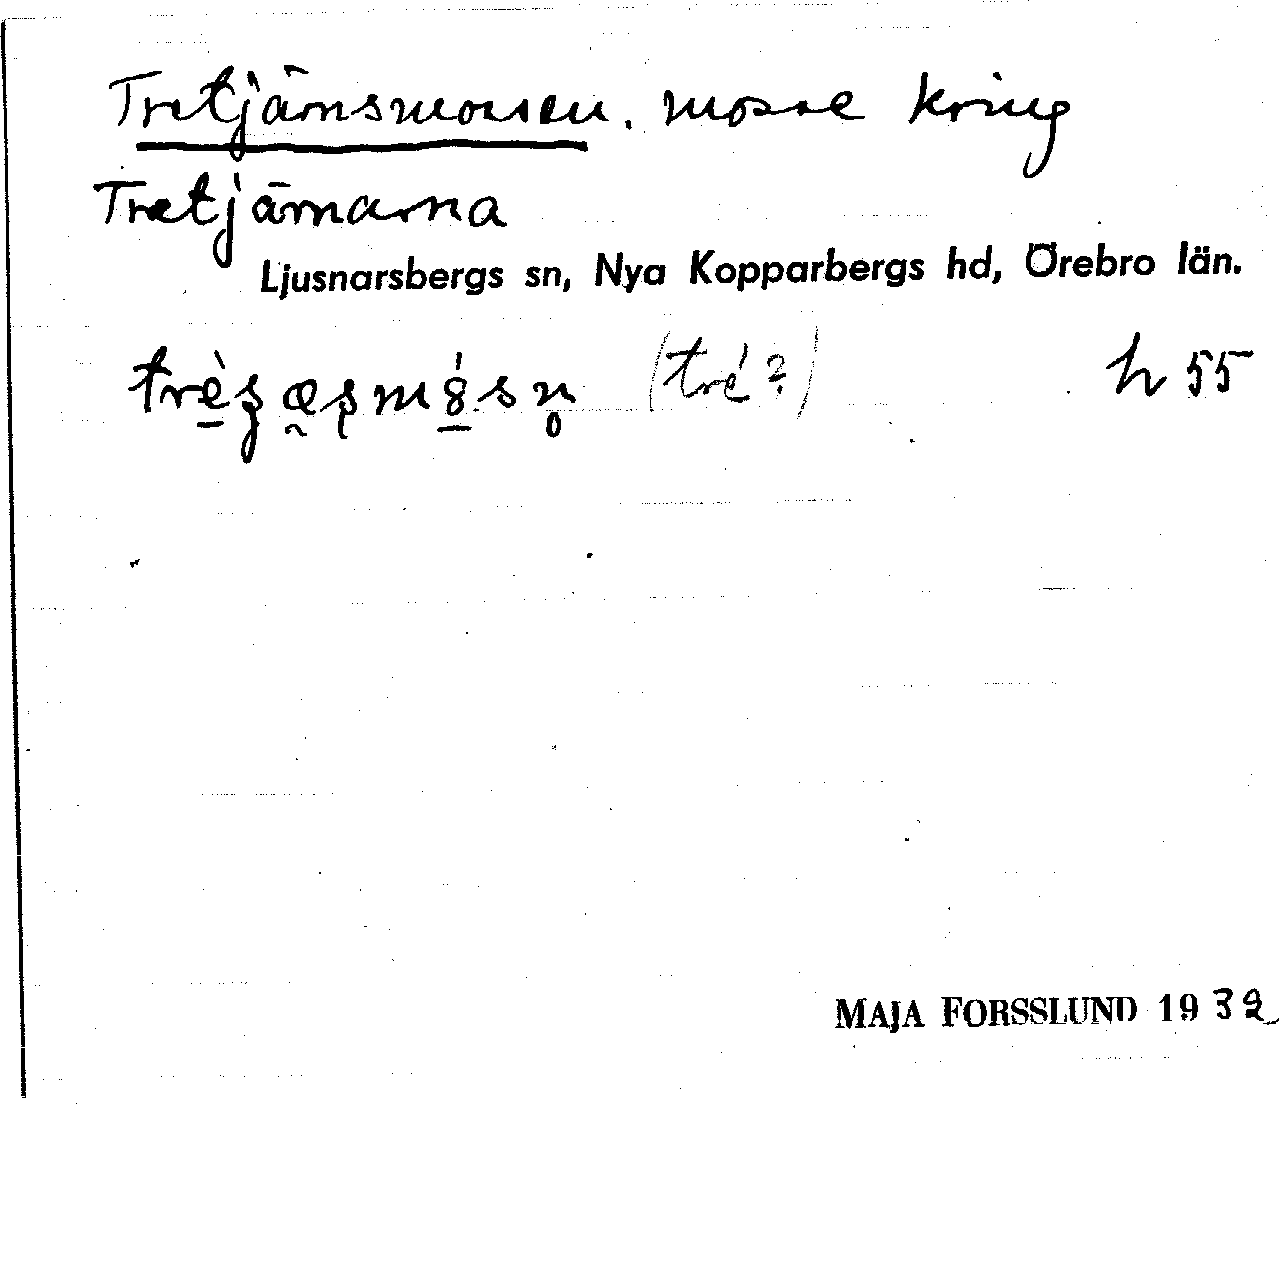 Tretjärnsmossen. mosse kring
Tretjärnarna
Ljusnarsbergs sn, Nya Kopparbergs hd, Örebro län.
(tré?) h 55
MAJA FORSSLUND 1932